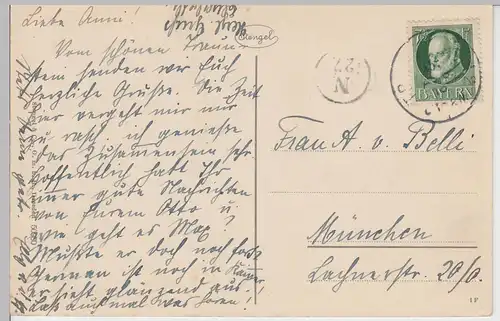 Liebe Anni!
Vom schönen Traun-
stein senden wir Euch
herzliche Grüße. Die Zeit
vergeht mir nur
zu rasch, ich genieße
das Zusammensein sehr.
Hoffentlich habt Ihr
immer gute Nachrichten
von Eurem Otto u.
wie geht es Max?
Mußte er doch noch fort?
German ist noch in
er sieht glänzend aus!
Laß auch mal was hören!
Stengel
N
BAYERN
Frau A. v. Belli
München
Lachnerstr. 20/0.